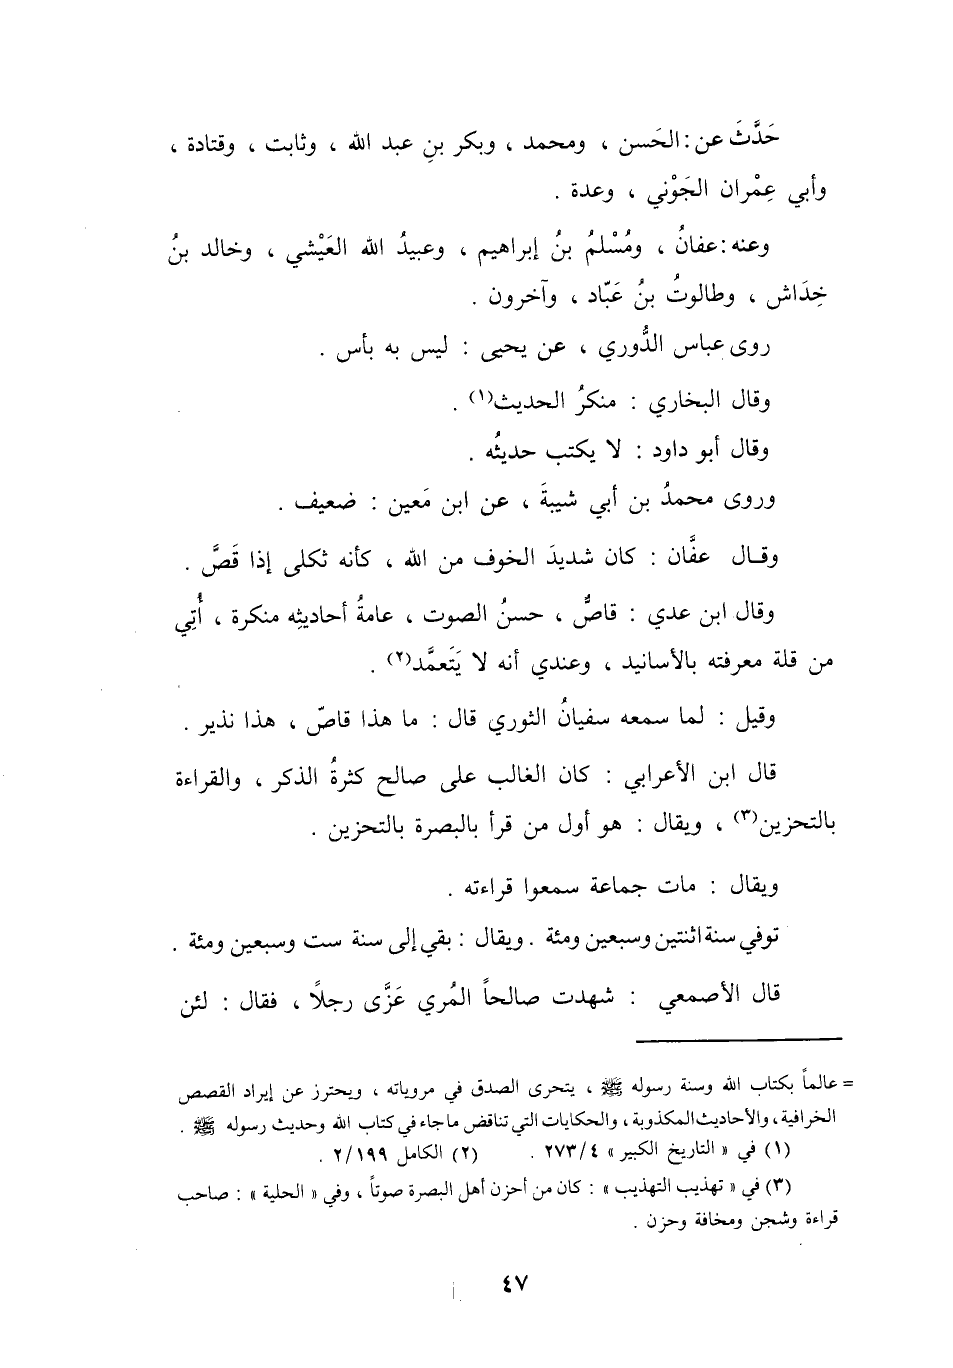 حَدَّثَ عن : الحَسن ، ومحمد ، وبكر بنِ عبد الله ، وثابت ، وقتادة ،
وأبي عِمْران الجَوْني ، وعدة .
وعنه : عفانُ ، ومُسْلمُ بنُ إبراهيم ، وعبيدُ الله العَيْشي ، وخالد بنُ
خِدَاش ، وطالوتُ بنُ عَبّاد ، وآخرون .
روى عباس الدُّوري ، عن يحيى : ليس به بأس .
وقال البخاري : منكرُ الحديث(١) .
وقال أبو داود : لا يكتب حديثُه .
وروى محمدُ بن أبي شيبةَ ، عن ابن مَعين : ضعيف .
وقال عفَّان : كان شديدَ الخوف من الله ، كأنه ثكلى إذا قَصَّ .
وقال ابن عدي : قاصٌّ ، حسنُ الصوت ، عامةُ أحاديثِه منكرة ، أُتِي
من قلة معرفته بالأسانيد ، وعندي أنه لا يَتَعمَّد(٢) .
وقيل : لما سمعه سفيانُ الثوري قال : ما هذا قاصّ ، هذا نذير .
قال ابن الأعرابي : كان الغالب على صالح كثرةُ الذكر ، والقراءة
بالتحزين(٣) ، ويقال : هو أول من قرأ بالبصرة بالتحزين .
ويقال : مات جماعة سمعوا قراءته .
توفي سنة اثنتين وسبعين ومئة . ويقال : بقي إلى سنة ست وسبعين ومئة .
قال الأصمعي : شهدت صالحاً المُري عَزَّى رجلاً ، فقال : لئن
= عالماً بكتاب الله وسنة رسوله ﷺ ، يتحرى الصدق في مروياته ، ويحترز عن إيراد القصص
الخرافية ، والأحاديث المكذوبة ، والحكايات التي تناقض ما جاء في كتاب الله وحديث رسوله ﷺ .
(١) في « التاريخ الكبير » ٢٧٣/٤ . (٢) الكامل ٢/١٩٩ .
(٣) في « تهذيب التهذيب » : كان من أحزن أهل البصرة صوتاً ، وفي « الحلية » : صاحب
قراءة وشجن ومخافة وحزن .
٤٧